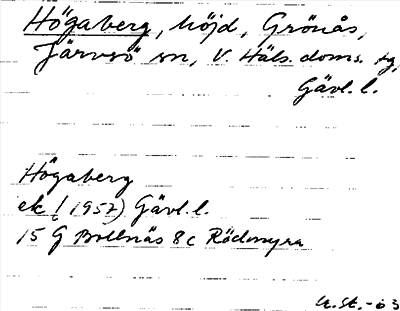 Högaberg, höjd, Grönås,
Järvsö sn, V. Häls. doms. tg,
Gävl. l.
Högaberg
ek (1957) Gävl. l.
15 G Bollnäs 8c Rödmyra
U. St. -63